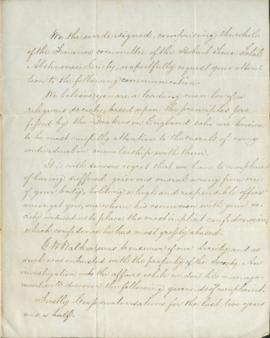 We the undersigned, comprising the whole
of the Finance committee of the
Society, respectfully request your atten
tion to the following communication.
We believe you are a leading member of a
religious society, based upon the principles pro
fessed by the Quakers in England who are known
to be most carefully attentive to the morals of every
individual in membership with them.
It is with serious regret that we have to complain
of having suffered grievous moral wrong from one
of your body, holding a high and responsible office
amongst you, and whose his connexion with your so
ciety induced us to place the most implicit confidence in
which confidence he has most grossly abused.
was treasurer of our Society and as
such was entrusted with the property of the Society. An
investigation into the affairs while under his manage
ment the following grounds of complaint.
Firstly for the last two years
and a half.